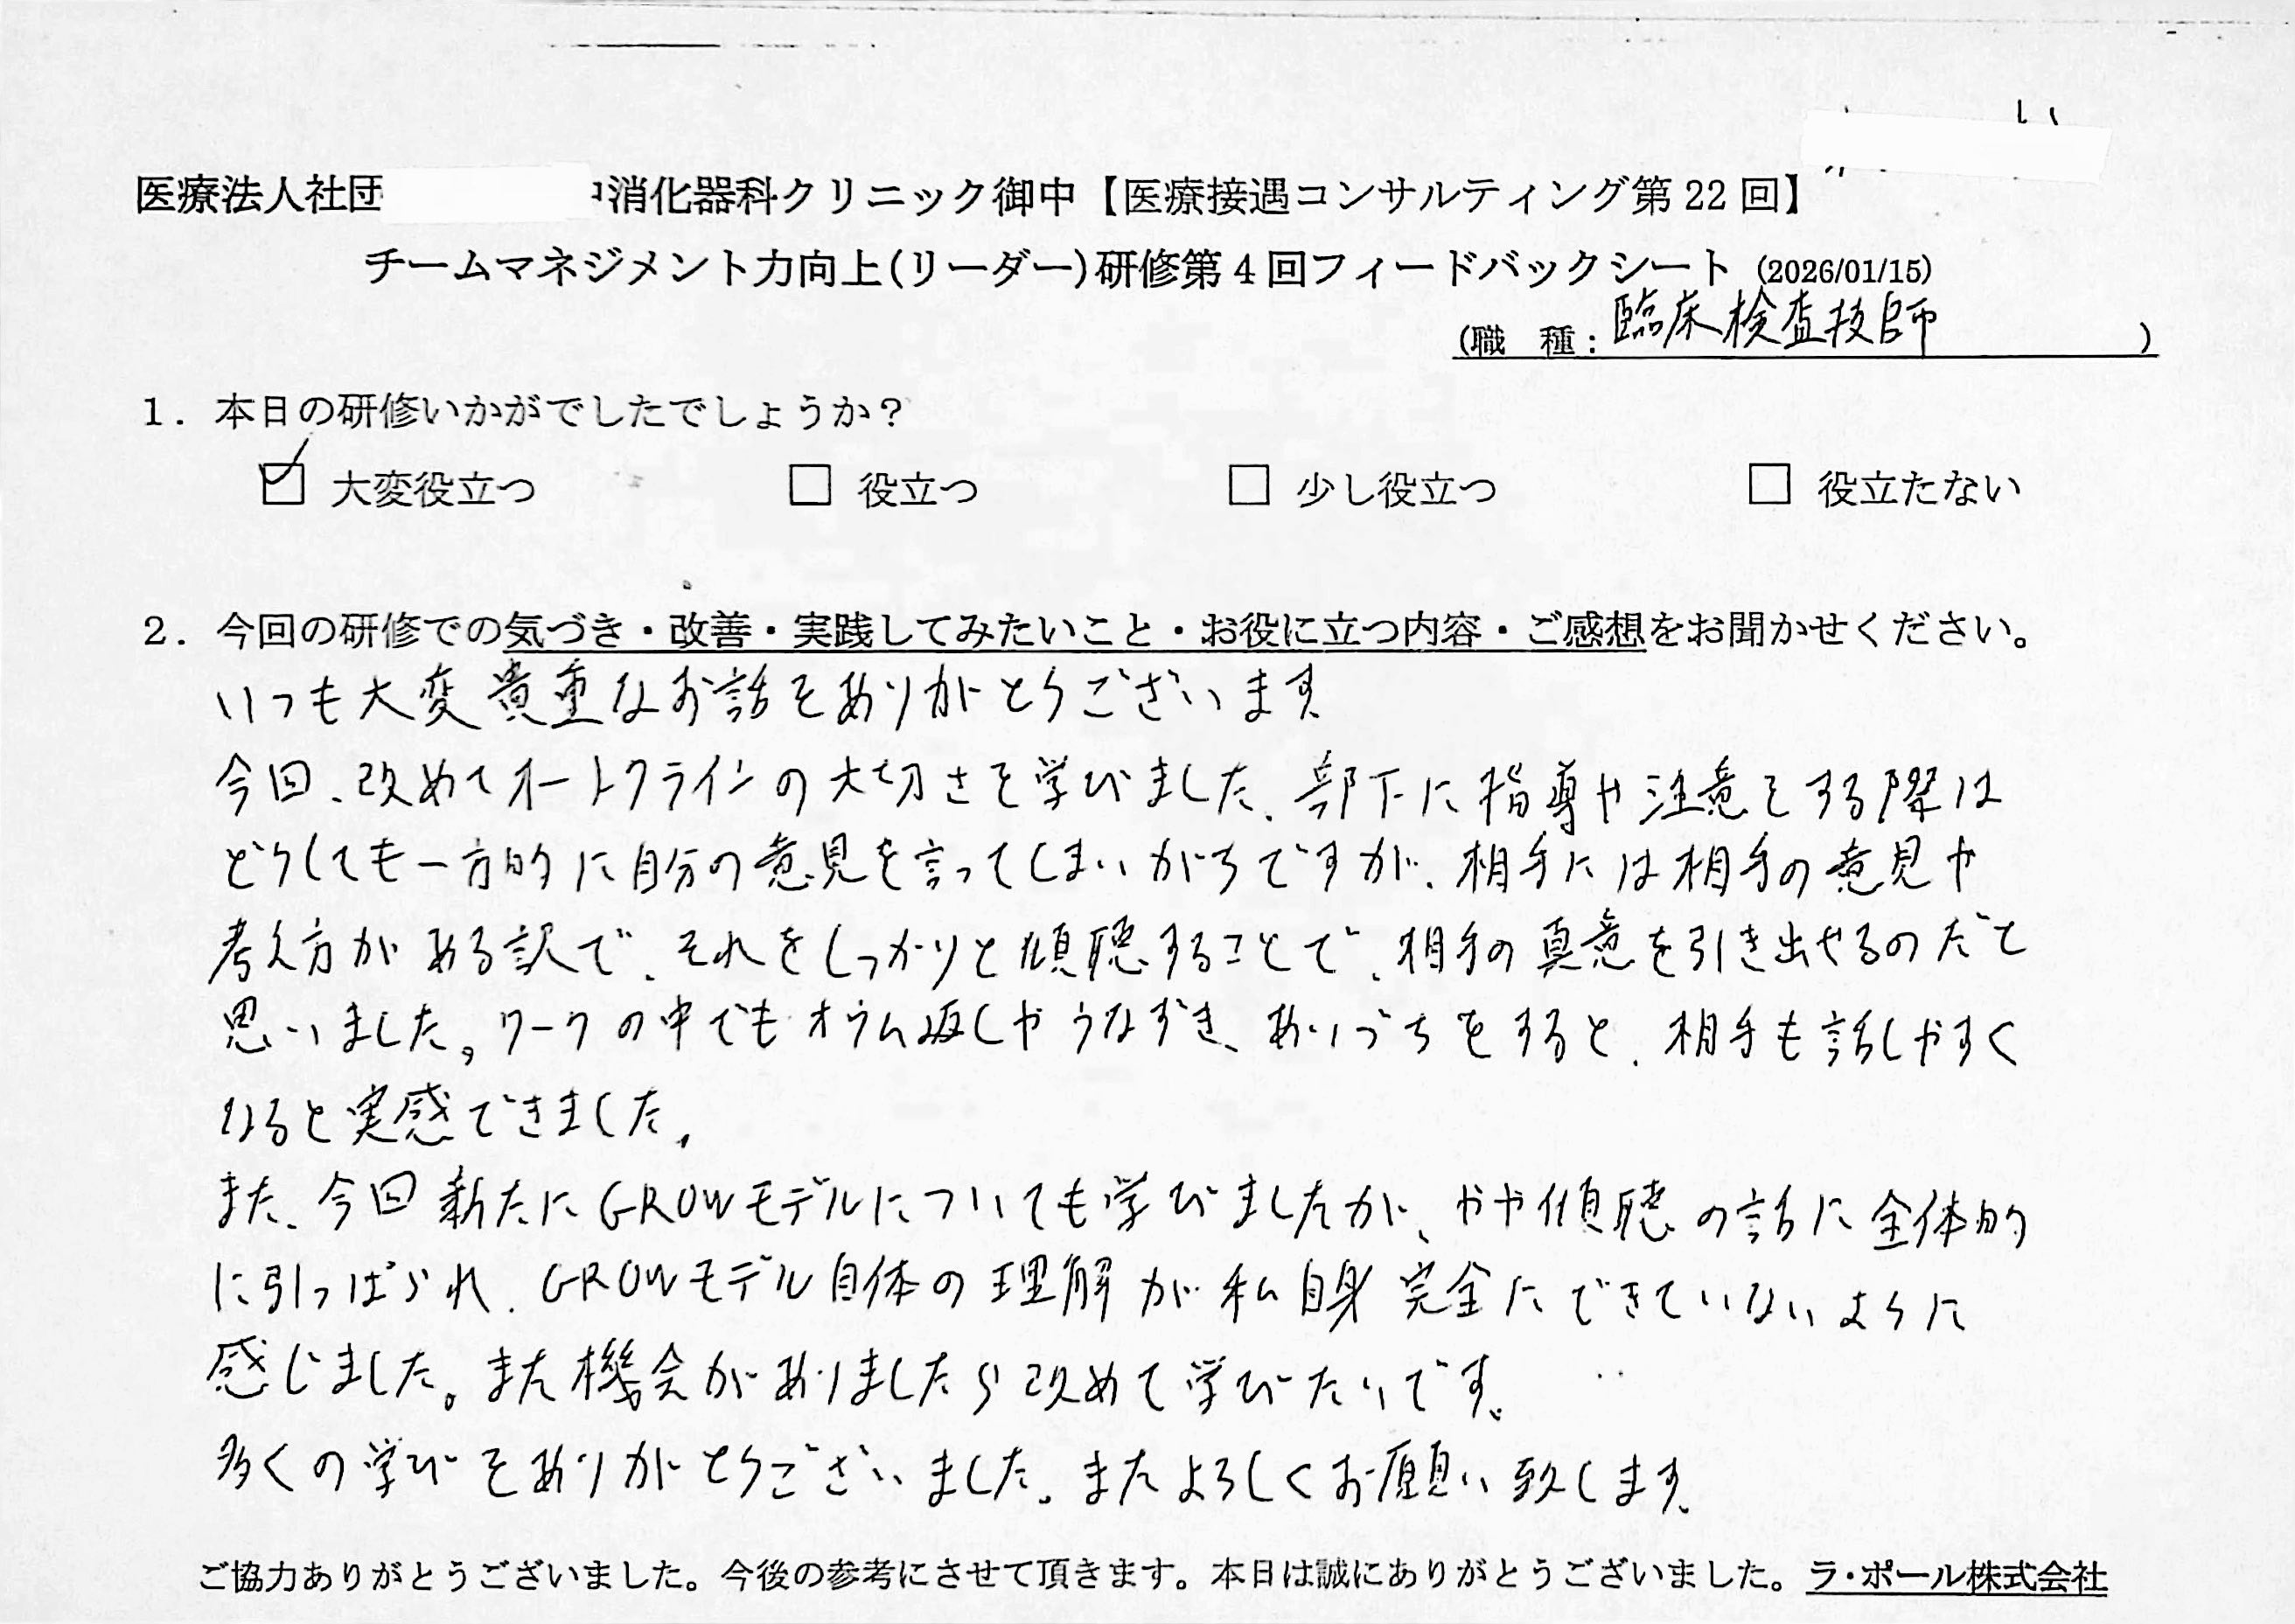 医療法人社団 消化器科クリニック御中【医療接遇コンサルティング第 22 回】
チームマネジメント力向上(リーダー)研修第 4 回フィードバックシート (2026/01/15)
(職 種: 臨床検査技師 )
1. 本日の研修いかがでしたでしょうか?
☑ 大変役立つ □ 役立つ □ 少し役立つ □ 役立たない
2. 今回の研修での気づき・改善・実践してみたいこと・お役に立つ内容・ご感想をお聞かせください。
いつも大変貴重なお話をありがとうございます。
今回、改めてオートクラインの大切さを学びました。部下に指導や注意をする際は
どうしても一方的に自分の意見を言ってしまいがちですが、相手には相手の意見や
考え方がある訳で、それをしっかりと傾聴することで、相手の真意を引き出せるのだと
思いました。ワークの中でもオウム返しやうなずき、あいづちをすると、相手も話しやすく
なると実感できました。
また、今回新たにGROWモデルについても学びましたが、やや傾聴の話に全体的
に引っぱられ、GROWモデル自体の理解が私自身完全にできていないように
感じました。また機会がありましたら改めて学びたいです。
多くの学びをありがとうございました。またよろしくお願い致します。
ご協力ありがとうございました。今後の参考にさせて頂きます。本日は誠にありがとうございました。ラ・ポール株式会社